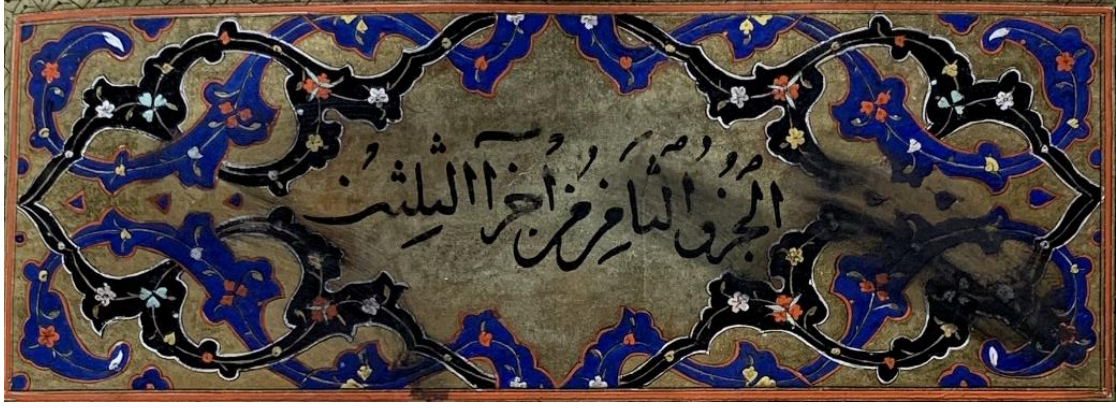 الجُزؤُ الثَّامِنُ مِنْ اَجْزَآ الثَّلٰثِیْنَ